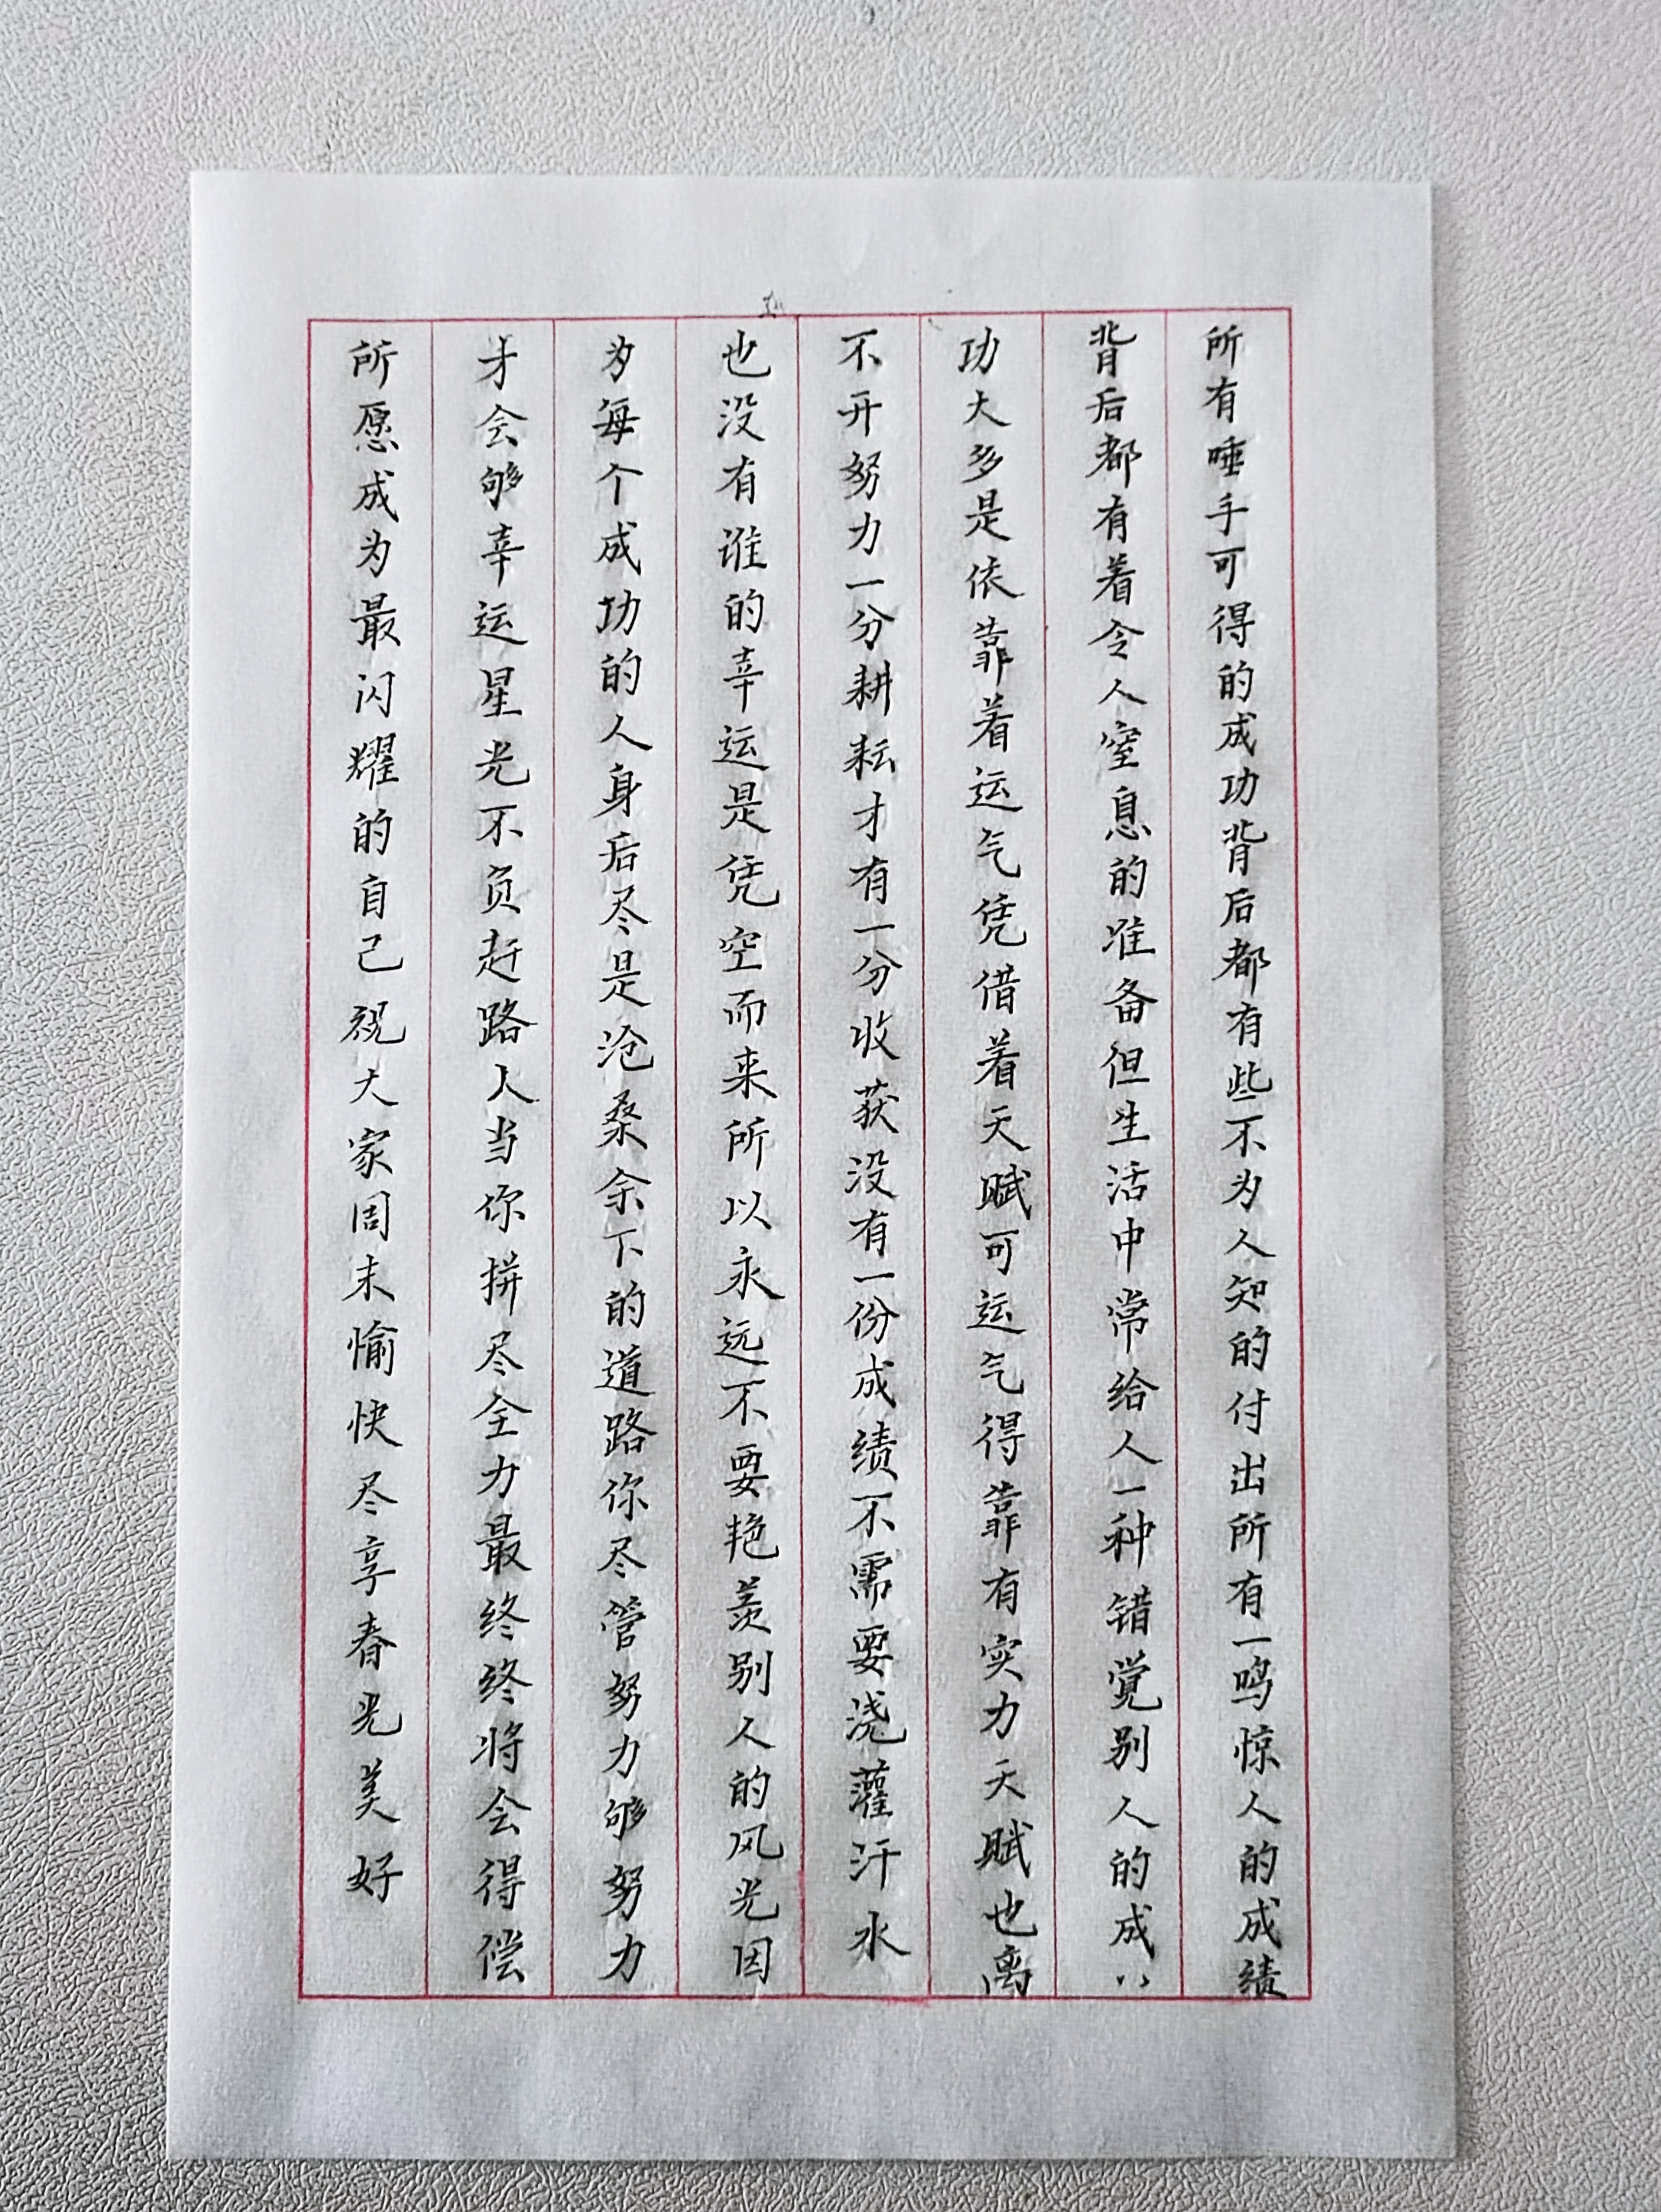 所有唾手可得的成功背后都有些不为人知的付出所有一鸣惊人的成绩
背后都有着令人窒息的准备但生活中常给人一种错觉别人的成〃
功大多是依靠着运气凭借着天赋可运气得靠有实力天赋也离
不开努力一分耕耘才有一分收获没有一份成绩不需要浇灌汗水
也没有谁的幸运是凭空而来所以永远不要艳羡别人的风光因
为每个成功的人身后尽是沧桑余下的道路你尽管努力够努力
才会够幸运星光不负赶路人当你拼尽全力最终终将会得偿
所愿成为最闪耀的自己祝大家周末愉快尽享春光美好